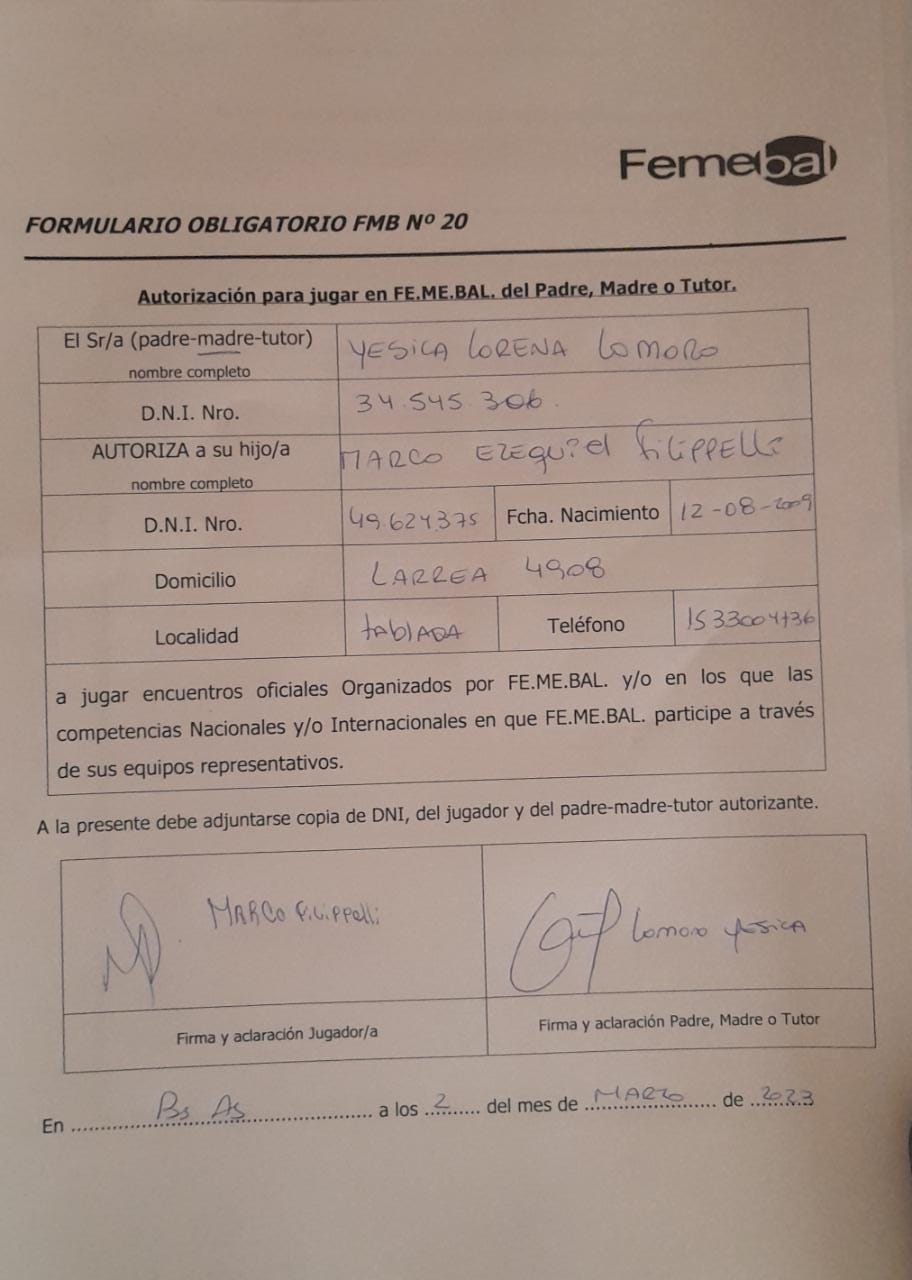 Femebal
FORMULARIO OBLIGATORIO FMB Nº 20
Autorización para jugar en FE.ME.BAL. del Padre, Madre o Tutor.
El Sr/a (padre-madre-tutor) YESICA LORENA LOMORO
nombre completo
D.N.I. Nro. 34.545.306.
AUTORIZA a su hijo/a MARCO EZEQUiel FiLiPPELLi
nombre completo
D.N.I. Nro. 49.624.375 Fcha. Nacimiento 12-08-2009
Domicilio LARREA 4908
Localidad tablADA Teléfono 1533004736
a jugar encuentros oficiales Organizados por FE.ME.BAL. y/o en los que las
competencias Nacionales y/o Internacionales en que FE.ME.BAL. participe a través
de sus equipos representativos.
A la presente debe adjuntarse copia de DNI, del jugador y del padre-madre-tutor autorizante.
MARCO FiLiPPelli Lomoro yESiCA
Firma y aclaración Jugador/a Firma y aclaración Padre, Madre o Tutor
En Bs As a los 2 del mes de MARZO de 2023